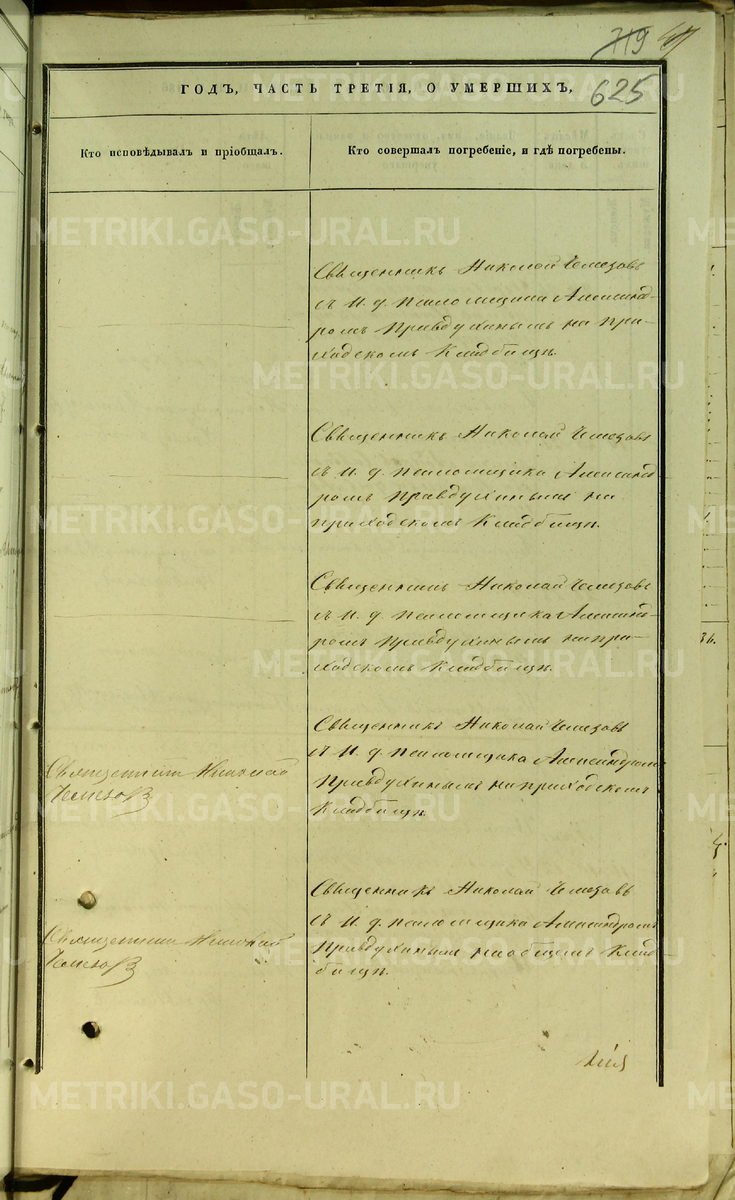 719
625
ГОДЪ, ЧАСТЬ ТРЕТІЯ, О УМЕРШИХЪ,
Кто исповѣдывалъ и пріобщалъ.
Кто совершалъ погребеніе, и гдѣ погребены.
METRIKI.GASO-URAL.RU
Священникъ Николай Чемезовъ
съ И. д. псаломщика Александ-
ромъ Правдухинымъ на при-
ходскомъ кладбищѣ.
Священникъ Николай Чемезовъ
съ И. д. псаломщика Александ-
ромъ Правдухинымъ на
приходскомъ кладбищѣ.
Священникъ Николай Чемезовъ
съ И. д. псаломщика Александ-
ромъ Правдухинымъ на при-
ходскомъ кладбищѣ.
Священникъ Николай
Чемезовъ
Священникъ Николай Чемезовъ
съ И. д. псаломщика Александромъ
Правдухинымъ на приходскомъ
кладбищѣ.
Священникъ Николай
Чемезовъ
Священникъ Николай Чемезовъ
съ И. д. псаломщика Александромъ
Правдухинымъ на общемъ клад-
бищѣ.